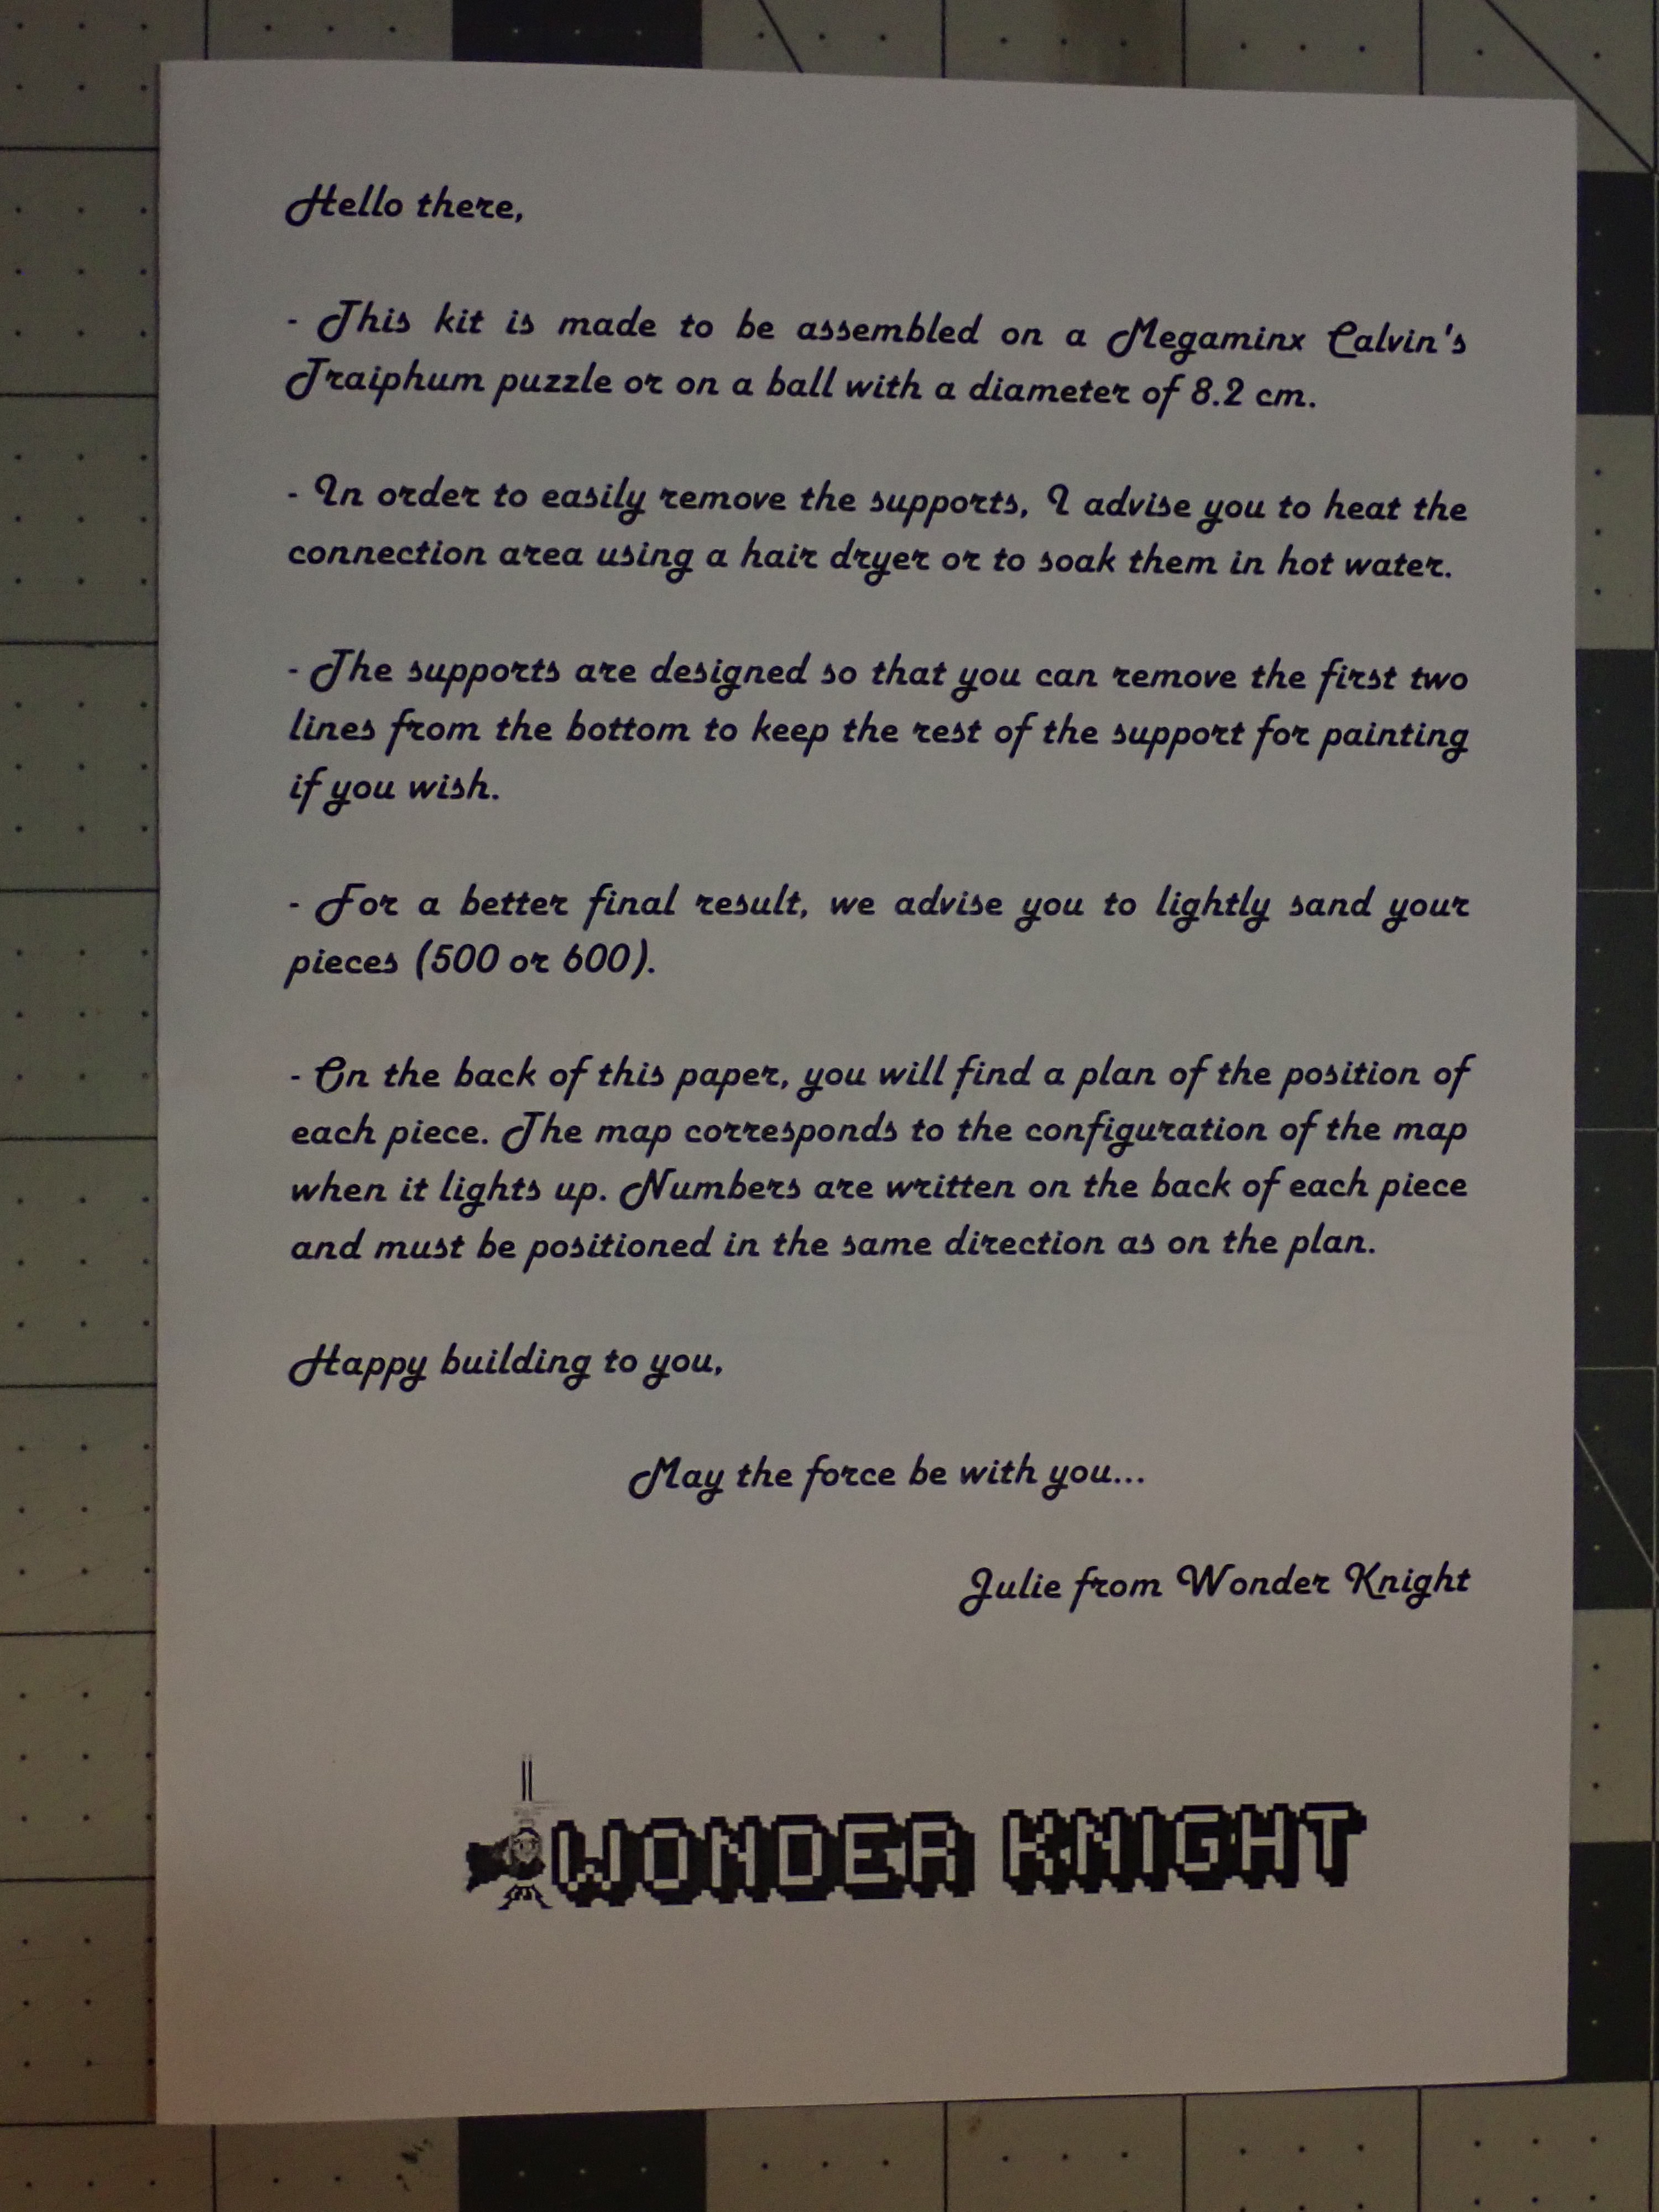 Hello there,
- This kit is made to be assembled on a Megaminx Calvin's
Traiphum puzzle or on a ball with a diameter of 8.2 cm.
- In order to easily remove the supports, I advise you to heat the
connection area using a hair dryer or to soak them in hot water.
- The supports are designed so that you can remove the first two
lines from the bottom to keep the rest of the support for painting
if you wish.
- For a better final result, we advise you to lightly sand your
pieces (500 or 600).
- On the back of this paper, you will find a plan of the position of
each piece. The map corresponds to the configuration of the map
when it lights up. Numbers are written on the back of each piece
and must be positioned in the same direction as on the plan.
Happy building to you,
May the force be with you...
Julie from Wonder Knight
WONDER KNIGHT